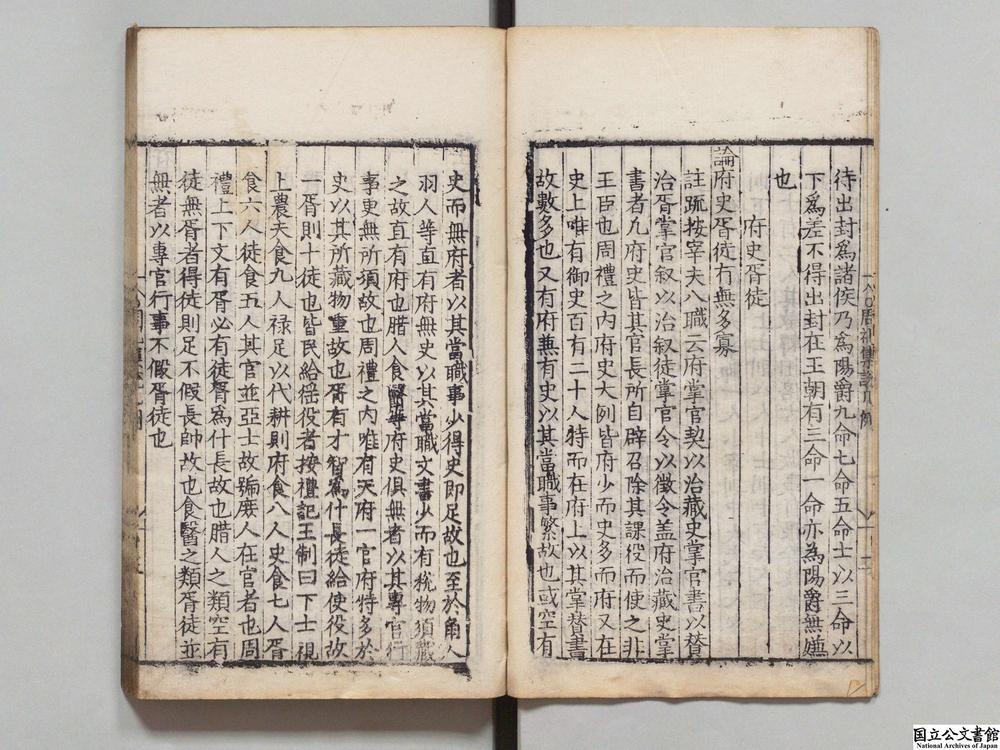 待出封為諸侯乃為陽爵九命七命五命士以三命以
下為差不得出封在王朝有三命一命亦為陽爵無嫌
也
府史胥徒
論府史胥徒有無多寡
註疏按宰夫八職云府掌官契以治藏史掌官書以賛
治胥掌官叙以治叙徒掌官令以徵令盖府治藏史掌
書者凡府史皆其官長所自辟召除其課役而使之非
王臣也周禮之内府史大例皆府少而史多而府又在
史上唯有御史百有二十人特而在府上以其掌賛書
故數多也又有府兼有史以其當職事繁故也或空有
史而無府者以其當職事少得史即足故也至於角人
羽人等直有府無史以其當職文書少而有稅物須藏
之故直有府也腊人食醫等府史俱無者以其專官行
事更無所須故也周禮之内唯有天府一官府特多於
史以其所藏物重故也胥有才智為什長徒給使役故
一胥則十徒也皆民給徭役者按禮記王制曰下士視
上農夫食九人禄足以代耕則府食八人史食七人胥
食六人徒食五人其官並亞士故號庶人在官者也周
禮上下文有胥必有徒胥為什長故也腊人之類空有
徒無胥者得徒則足不假長帥故也食醫之類胥徒並
無者以專官行事不假胥徒也
国立公文書館
National Archives of Japan